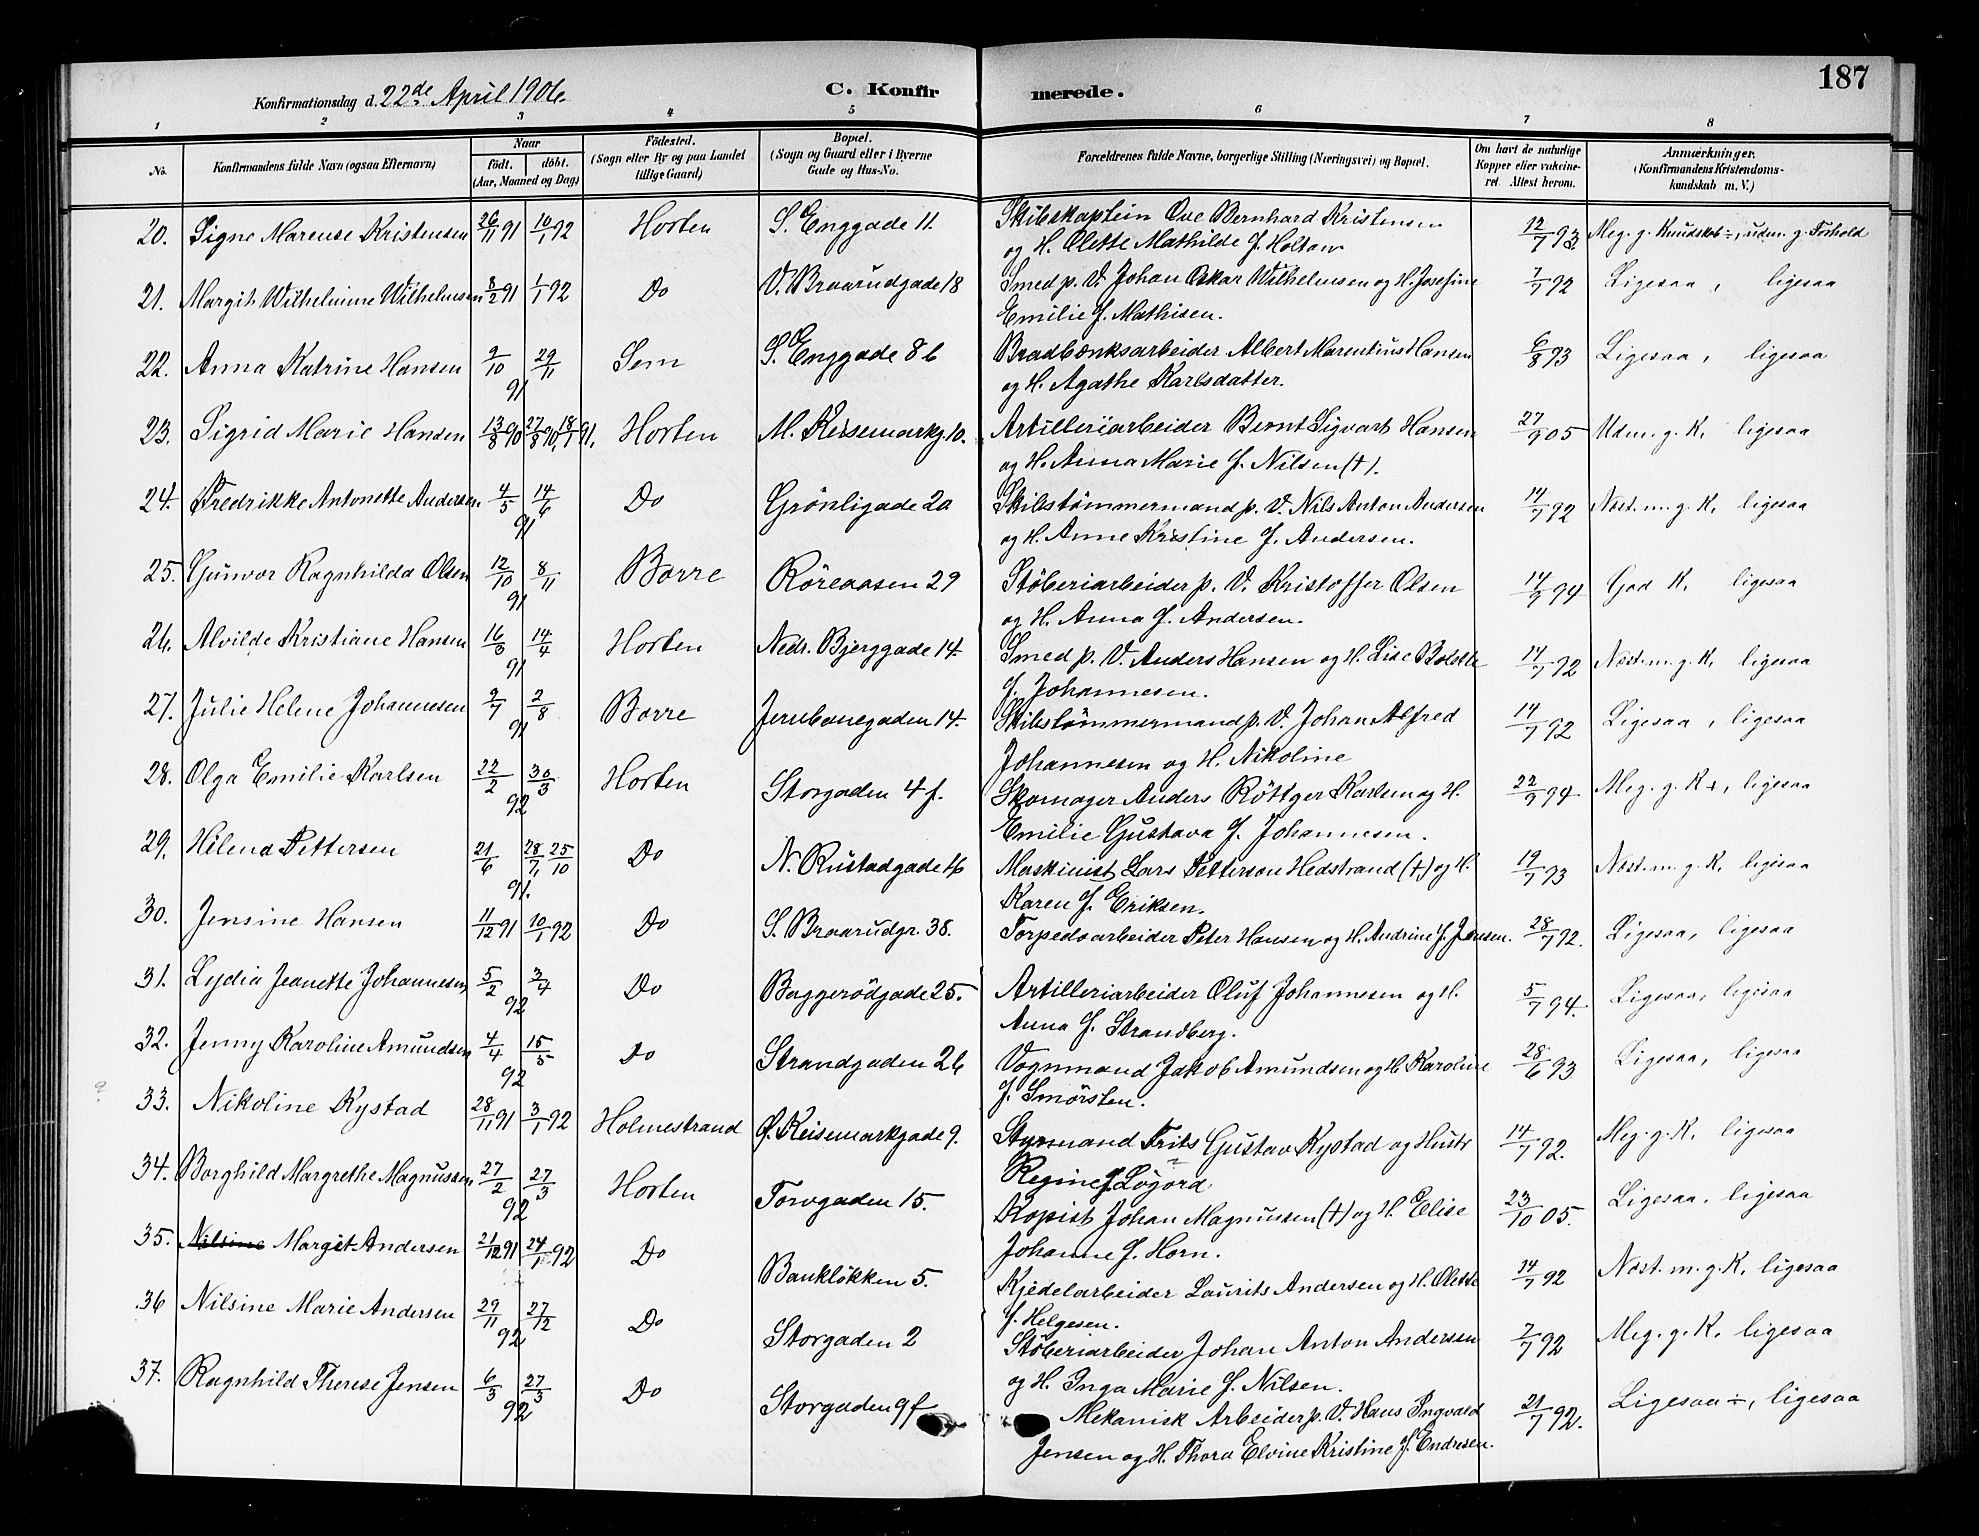 187
Konfirmationsdag d. 22de April 1906.
C. Konfir merede.
1 2 3 4 5 6 7 8
No. Konfirmandens fulde Navn (ogsaa Efternavn) Naar født. døbt. (Aar, Maaned og Dag) Fødested. (Sogn eller By og paa Landet tillige Gaard) Bopæl. (Sogn og Gaard eller i Byerne Gade og Hus-No. Forældrenes fulde Navne, borgerlige Stilling (Næringsvei) og Bopæl. Om havt de naturlige Kopper eller vakcineret. Attest herom. Anmærkninger. (Konfirmandens Kristendomskundskab m. V.)
20. Signe Marense Kristensen 26/11 91 10/1 92 Horten S. Enggade 11. Skibskaptein Ove Bernhard Kristensen 12/7 93 Meg. g. Kundskab ÷, udm. g. Forhold
og H. Olette Mathilde f. Holtan
21. Margit Wilhelmine Wilhelmsen 8/2 91 1/1 92 Do V. Braarudgade 18 Smed p. V. Johan Oskar Wilhelmsen og H. Josefine 7/7 92 Ligesaa, ligesaa
Emilie f. Mathisen.
22. Anna Katrine Hansen 9/10 29/11 91 Sem S. Enggade 8b Bradbænksarbeider Albert Marentius Hansen 6/8 93 Ligesaa, ligesaa
og H. Agathe Karlsdatter.
23. Sigrid Marie Hansen 13/8 90 27/8 90, 18/1 91. Horten M. Keisemarkg. 10. Artilleriarbeider Bernt Sigvart Hansen 27/9 05 Udm. g. K, ligesaa
og H. Anna Marie f. Nilsen (†).
24. Fredrikke Antonette Andersen 4/5 14/6 91 Do Grønligade 20 Skibstømmermand p. V. Nils Anton Andersen 14/7 92 Næst. m. g. K, ligesaa
og H. Anne Kristine f. Andersen.
25. Gunvor Ragnhilda Olsen 12/10 8/11 91 Borre Røreaasen 29 Støberiarbeider p. V. Kristoffer Olsen 14/9 94 God K, ligesaa
og H. Anna f. Andersen.
26. Alvilde Kristiane Hansen 16/3 14/4 91 Horten Nedr. Bjerggade 14. Smed p. V. Anders Hansen og H. Lise Bolette 14/7 92 Næst. m. g. K, ligesaa
f. Johannesen.
27. Julie Helene Johannesen 9/7 2/8 91 Borre Jernbanegaden 14. Skibstømmermand p. V. Johan Alfred 14/7 92 Ligesaa, ligesaa
Johannesen og H. Nikoline
28. Olga Emilie Karlsen 22/2 30/3 92 Horten Storgaden 4f. Skomager Anders Røttger Karlsen og H. 22/9 94 Meg. g. K +, ligesaa
Emilie Gustava f. Johannesen.
29. Helena Pettersen 21/6 28/7, 25/10 91. Do N. Rustadgade 46 Maskinist Lars Petterson Hedstrand (†) og H. 19/7 93 Næst. m. g. K, ligesaa
Karen f. Eriksen.
30. Jensine Hansen 11/12 91 10/1 92 Do S. Braarudgr. 38. Torpedoarbeider Peter Hansen og H. Andrine f. Jensen. 28/7 92. Ligesaa, ligesaa
31. Lydia Jeanette Johannesen 5/2 3/4 92 Do Baggerødgade 25. Artilleriarbeider Oluf Johannesen og H. 5/7 94. Ligesaa, ligesaa
Anna f. Strandberg.
32. Jenny Karoline Amundsen 4/4 15/5 92 Do Strandgaden 26 Vognmand Jakob Amundsen og H Karoline 28/6 93 Ligesaa, ligesaa
f. Smørsten.
33. Nikoline Kystad 28/11 91 3/1 92 Holmestrand Ø. Keisemarkgade 9. Styrmand Frits Gustav Kystad og Hustr 14/7 92. Meg. g. K, ligesaa
Regine f. Løgørd
34. Borghild Margrethe Magnussen 27/2 27/3 92 Horten Torvgaden 15. Kopist Johan Magnussen (†) og H. Elise 23/10 05. Ligesaa, ligesaa
Johanne f. Horn.
35. Nilsine Margit Andersen 21/12 91 24/1 92 Do Bankløkken 5. Kjedelarbeider Laurits Andersen og H. Olette 14/7 92 Næst. m. g. K, ligesaa
f. Helgesen.
36 Nilsine Marie Andersen 29/11 27/12 92 Do Storgaden 2 Støberiarbeider Johan Anton Andersen 7/7 92 Meg. g. K, ligesaa
og H. Inga Marie f. Nilsen.
37. Ragnhild Therese Jensen 6/3 27/3 92 Do Storgaden 9f Mekanisk Arbeider p. V. Hans Ingvald 21/7 92. Ligesaa ÷, ligesaa
Jensen og H. Thora Elvine Kristine f. Endresen.